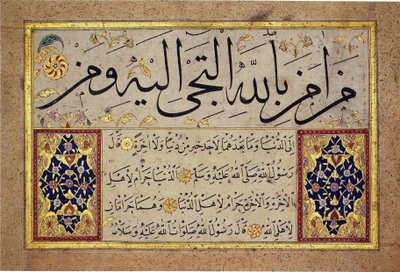 من امن بالله التجى اليه ومن
الى الدنيا وما بعدهما من دنيا ولا اخرة قال
رسول الله صلى الله عليه وسلم الدنيا حرام لاهل
الاخرة والاخرة حرام لاهل الدنيا وهما حرامان
لاهل الله قال رسول الله صلوات الله عليه وسلامه